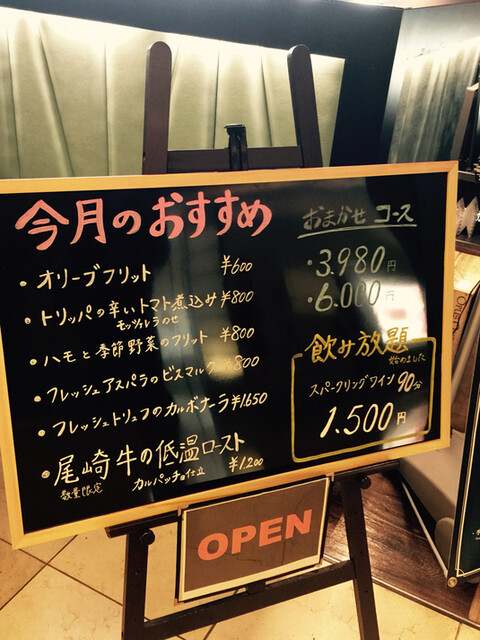 今月のおすすめ
・オリーブフリット ¥600
・トリッパの辛いトマト煮込み ¥800
モッツァレラのせ
・ハモと季節野菜のフリット ¥800
・フレッシュアスパラのビスマルク ¥800
・フレッシュトリュフのカルボナーラ ¥1.650
・尾崎牛の低温ロースト
数量限定 カルパッチョ仕立 ¥1.200
おまかせ コース
・3.980円
・6.000円
飲み放題
始めました
スパークリングワイン 90分
1.500円
OPEN